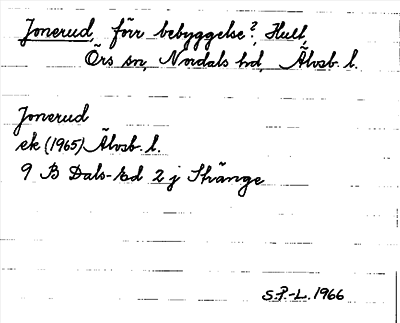 Jonerud, förr bebyggelse?, Hult,
Örs sn, Nordals hd, Älvsb. l.
Jonerud
ek (1965) Älvsb. l.
9 B Dals-Ed 2 j Stränge
S.P.-L. 1966